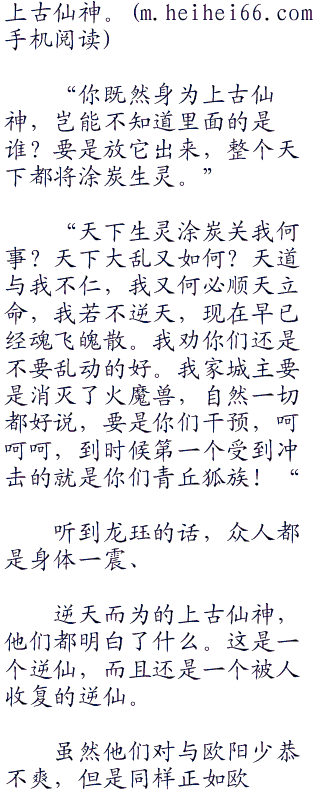 上古仙神。(m.heihei66.com
手机阅读)
“你既然身为上古仙
神，岂能不知道里面的是
谁？要是放它出来，整个天
下都将涂炭生灵。”
“天下生灵涂炭关我何
事？天下大乱又如何？天道
与我不仁，我又何必顺天立
命，我若不逆天，现在早已
经魂飞魄散。我劝你们还是
不要乱动的好。我家城主要
是消灭了火魔兽，自然一切
都好说，要是你们干预，呵
呵呵，到时候第一个受到冲
击的就是你们青丘狐族！“
听到龙珏的话，众人都
是身体一震、
逆天而为的上古仙神，
他们都明白了什么。这是一
个逆仙，而且还是一个被人
收复的逆仙。
虽然他们对与欧阳少恭
不爽，但是同样正如欧